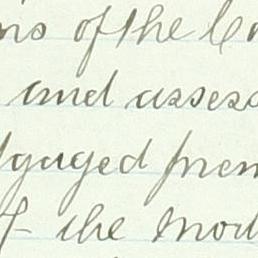 of the
and assess
gaged prem
the Mort